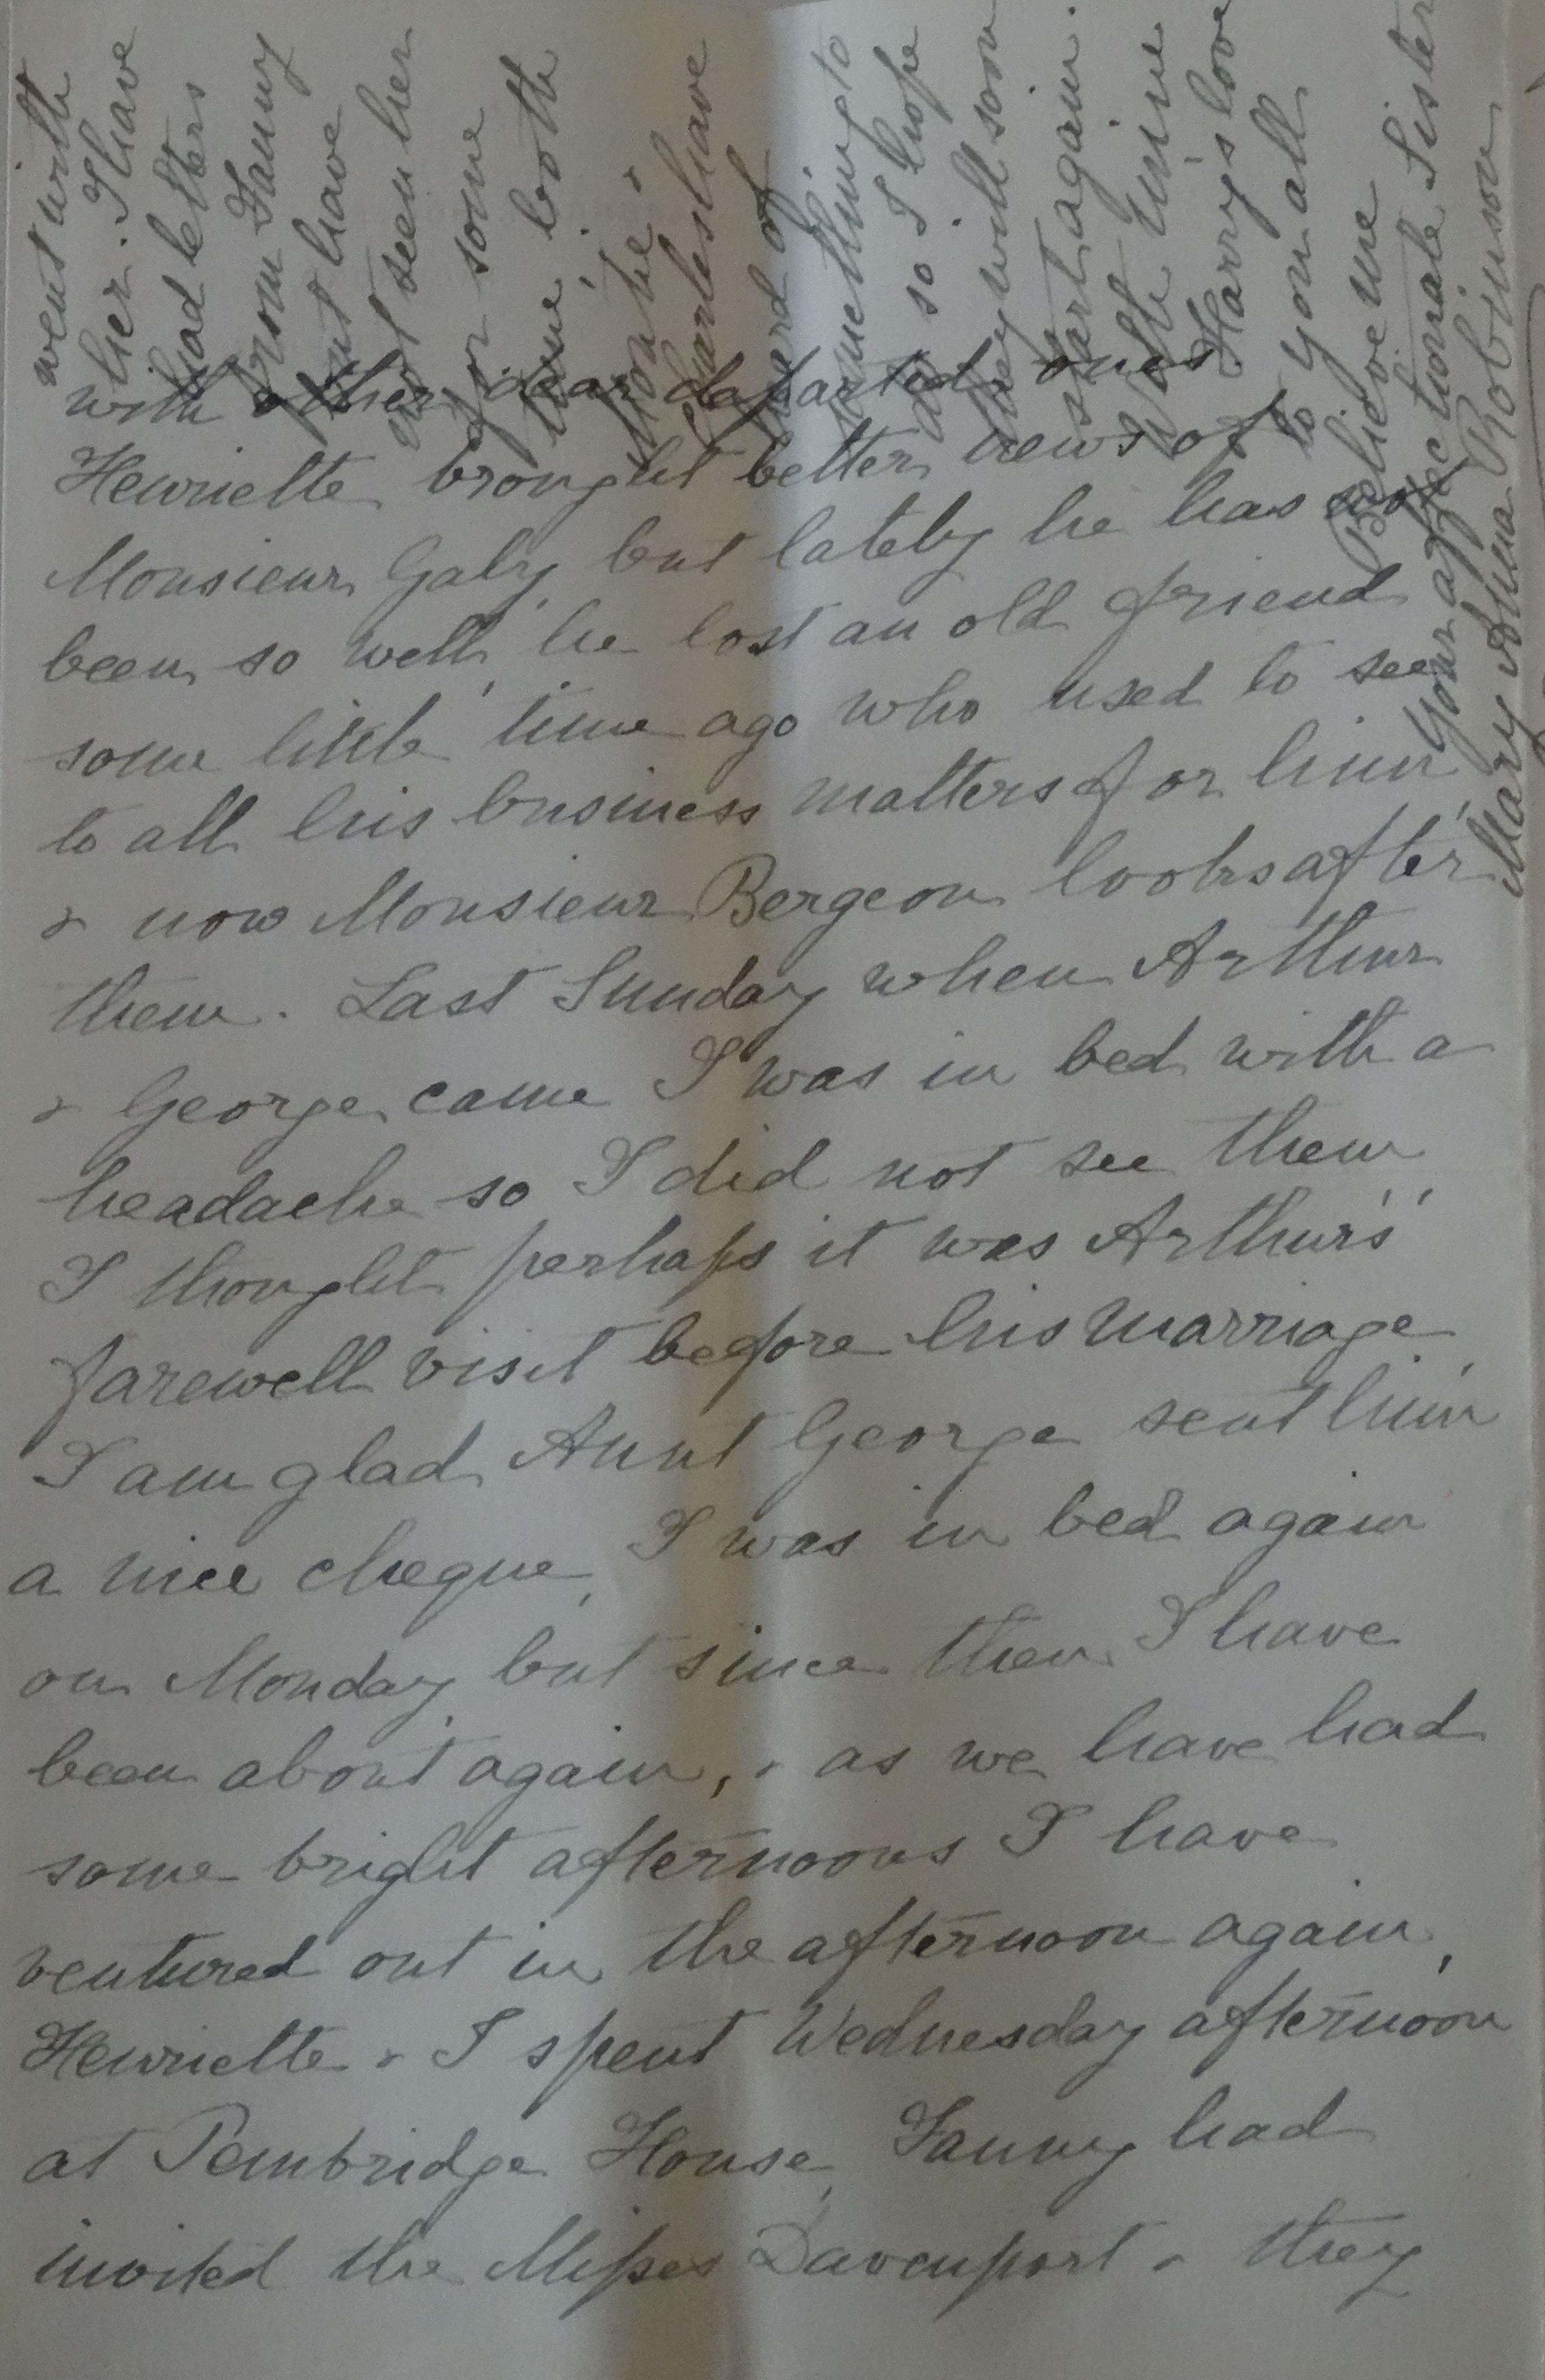 with other dear departed ones.
Henriette brought better news of
Monsieur Galy, but lately he has not
been so well, he lost an old friend
some little time ago who used to see
to all his business matters for him,
& now Monsieur Bergeon looks after
them. Last Sunday when Arthur
& George came I was in bed with a
headache so I did not see them
I thought perhaps it was Arthur's
farewell visit before his marriage,
I am glad Aunt George sent him
a nice cheque, I was in bed again
on Monday, but since then I have
been about again, & as we have had
some bright afternoons I have
ventured out in the afternoon again,
Henriette & I spent Wednesday afternoon
at Pembridge House, Fanny had
invited the Misses Davenport & they
went with
her. I have
had letters
from Fanny
but have
not seen her
for some
time, both
&
Charles have
heard of
something to
do so I hope
they will soon
start again.
With mine
& Harry's love
to you all
Believe me
Your affectionate Sister
Mary Anna Robinson